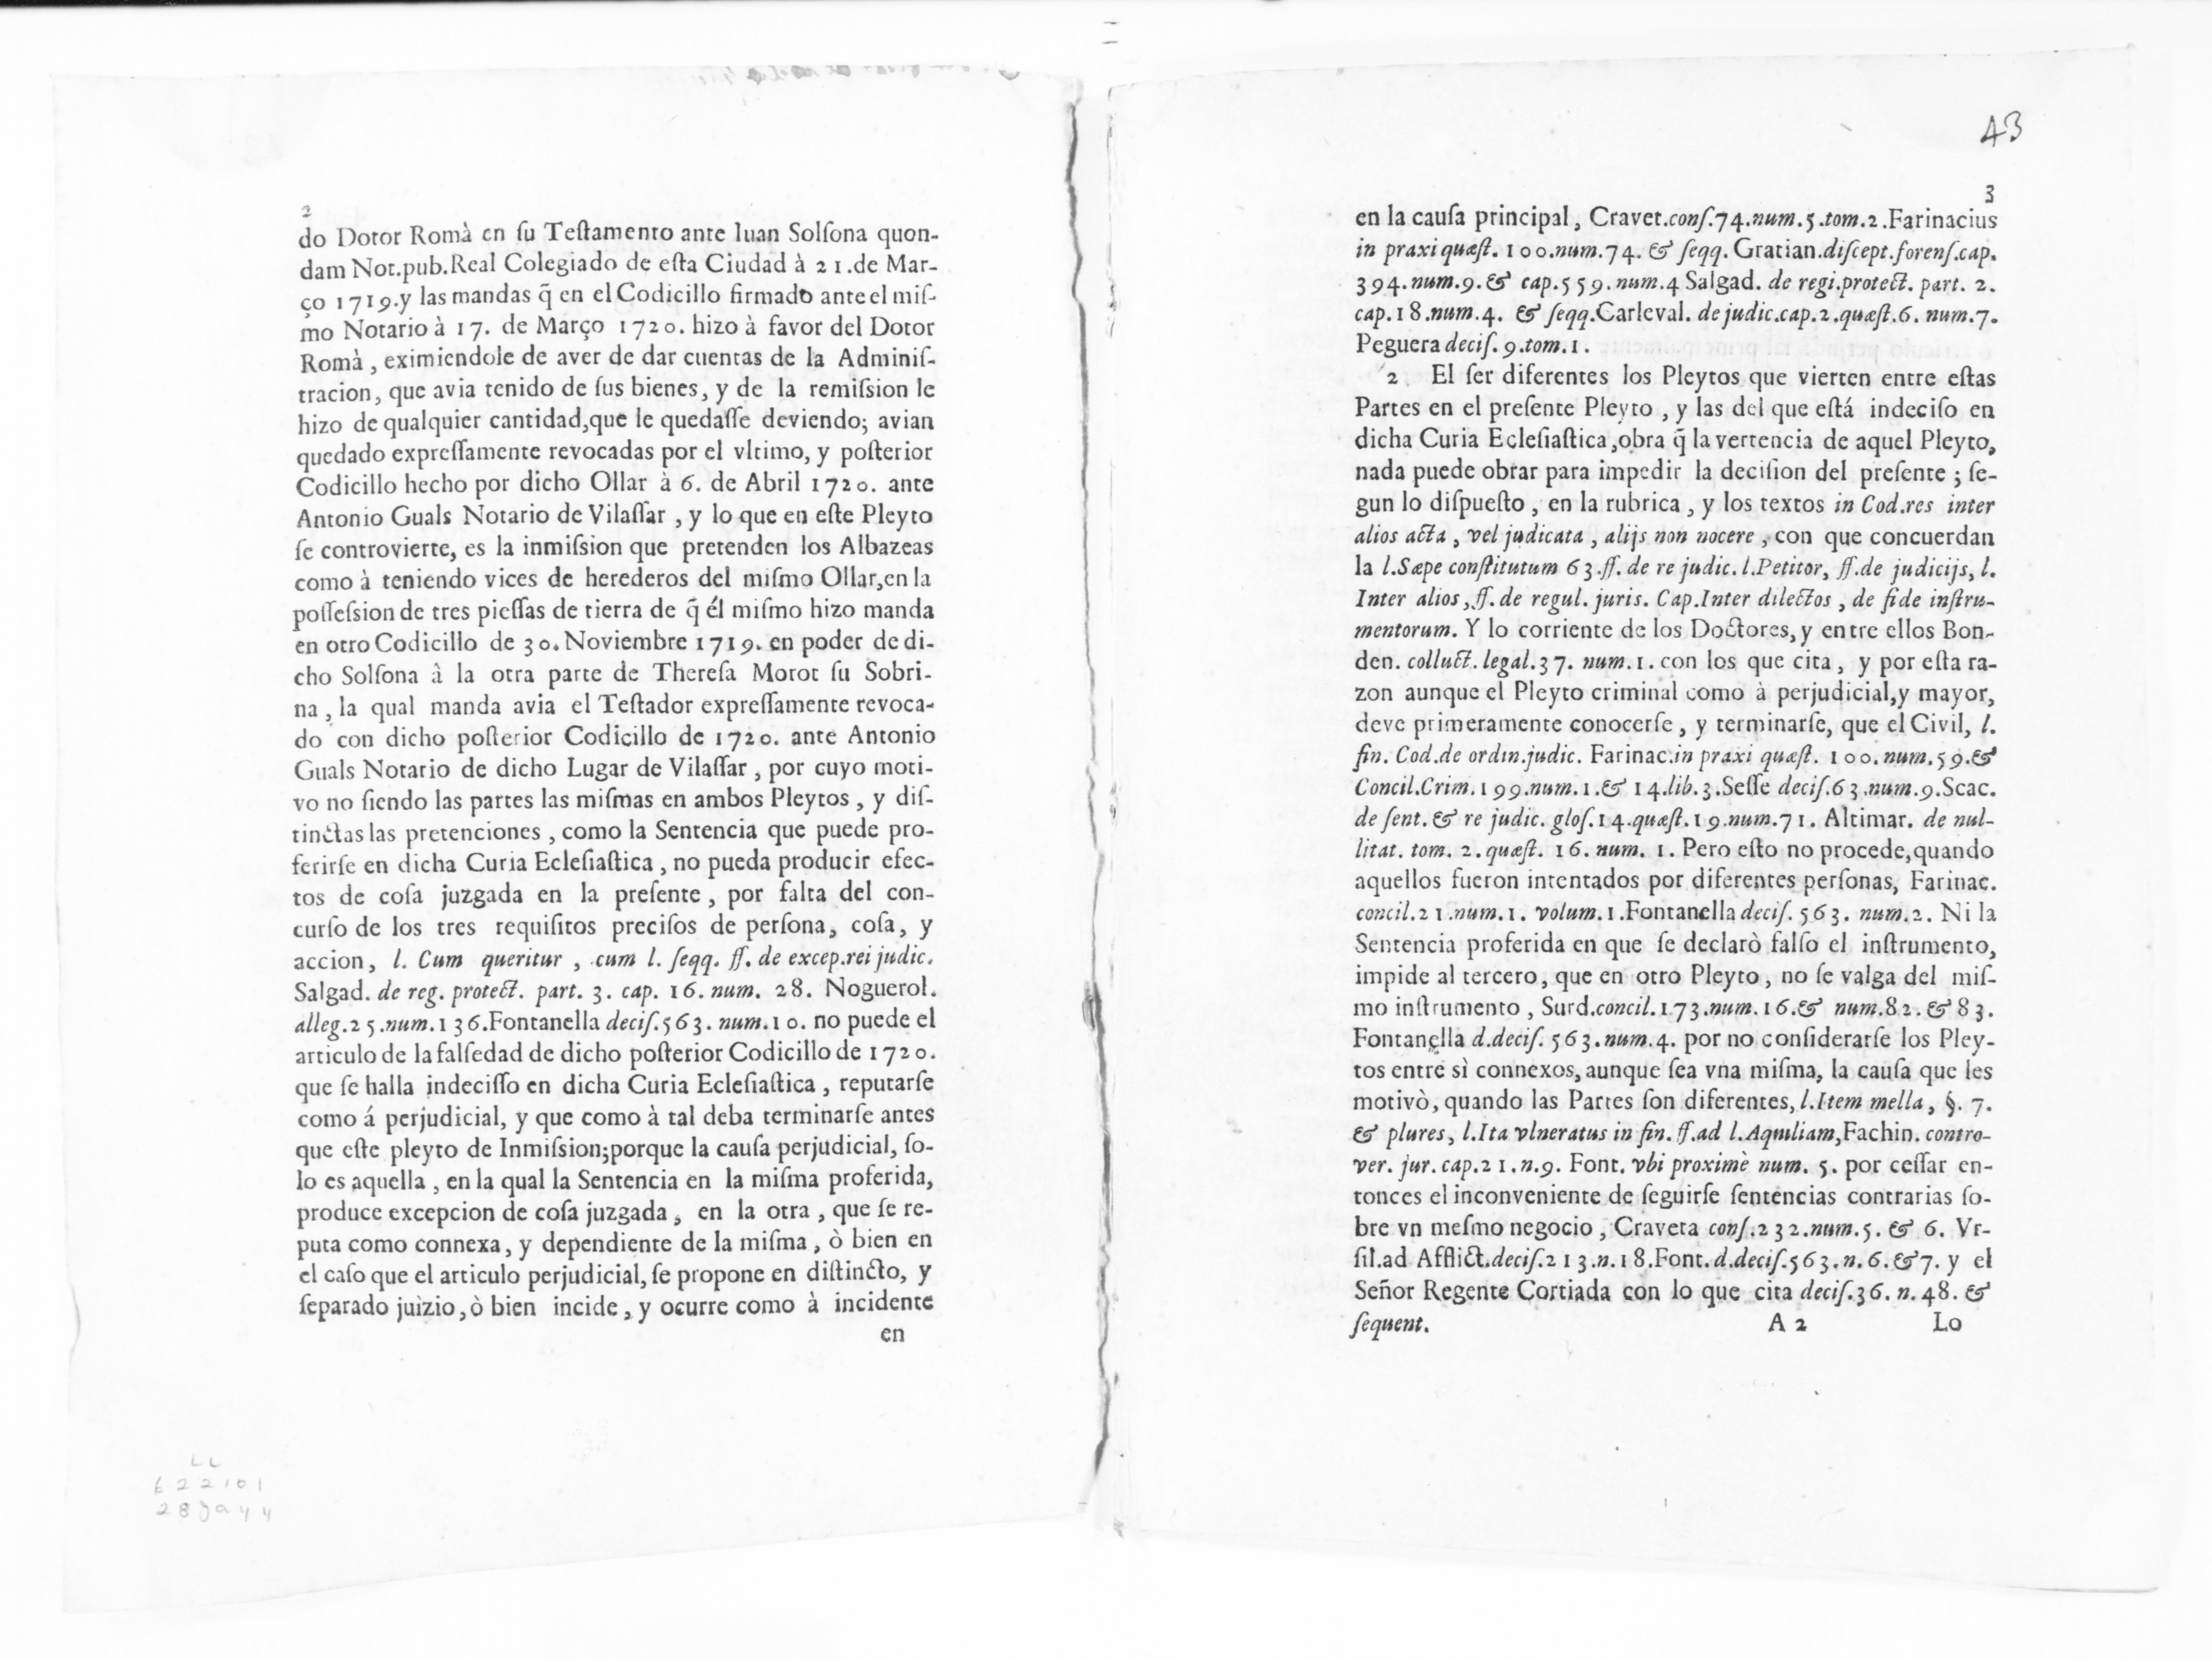 2
do Dotor Romà en ſu Teſtamento ante Iuan Solſona quon-
dam Not.pub.Real Colegiado de eſta Ciudad à 21.de Mar-
ço 1719.y las mandas q̃ en el Codicillo firmado ante el miſ-
mo Notario à 17. de Março 1720. hizo à favor del Dotor
Romà , eximiendole de aver de dar cuentas de la Adminiſ-
tracion, que avia tenido de ſus bienes, y de la remiſsion le
hizo de qualquier cantidad,que le quedaſſe deviendo; avian
quedado expreſſamente revocadas por el vltimo, y poſterior
Codicillo hecho por dicho Ollar à 6. de Abril 1720. ante
Antonio Guals Notario de Vilaſſar , y lo que en eſte Pleyto
ſe controvierte, es la inmiſsion que pretenden los Albazeas
como à teniendo vices de herederos del miſmo Ollar,en la
poſſeſsion de tres pieſſas de tierra de q̃ él miſmo hizo manda
en otro Codicillo de 30. Noviembre 1719. en poder de di-
cho Solſona à la otra parte de Thereſa Morot ſu Sobri-
na , la qual manda avia el Teſtador expreſſamente revoca-
do con dicho poſterior Codicillo de 1720. ante Antonio
Guals Notario de dicho Lugar de Vilaſſar , por cuyo moti-
vo no ſiendo las partes las miſmas en ambos Pleytos , y diſ-
tinctas las pretenciones , como la Sentencia que puede pro-
ferirſe en dicha Curia Ecleſiaſtica , no pueda producir efec-
tos de coſa juzgada en la preſente , por falta del con-
curſo de los tres requiſitos preciſos de perſona, coſa, y
accion, l. Cum queritur , cum l. ſeqq. ff. de excep.rei judic.
Salgad. de reg. protect. part. 3. cap. 16. num. 28. Noguerol.
alleg.25.num.136.Fontanella deciſ.563. num.10. no puede el
articulo de la falſedad de dicho poſterior Codicillo de 1720.
que ſe halla indeciſſo en dicha Curia Ecleſiaſtica , reputarſe
como á perjudicial, y que como à tal deba terminarſe antes
que eſte pleyto de Inmiſsion;porque la cauſa perjudicial, ſo-
lo es aquella , en la qual la Sentencia en la miſma proferida,
produce excepcion de coſa juzgada , en la otra , que ſe re-
puta como connexa, y dependiente de la miſma , ò bien en
el caſo que el articulo perjudicial, ſe propone en diſtincto, y
ſeparado juizio, ò bien incide , y ocurre como à incidente
en
LL
622101
28ja44
43
3
en la cauſa principal , Cravet.conſ.74.num.5.tom.2.Farinacius
in praxi quæſt. 100.num.74. & ſeqq. Gratian.diſcept.forenſ.cap.
394.num.9.& cap.559.num.4 Salgad. de regi.protect. part. 2.
cap.18.num.4. & ſeqq.Carleval. de judic.cap.2.quæſt.6. num.7.
Peguera deciſ.9.tom.1.
2 El ſer diferentes los Pleytos que vierten entre eſtas
Partes en el preſente Pleyto , y las del que eſtá indeciſo en
dicha Curia Ecleſiaſtica ,obra q̃ la vertencia de aquel Pleyto,
nada puede obrar para impedir la deciſion del preſente ; ſe-
gun lo diſpueſto , en la rubrica , y los textos in Cod.res inter
alios acta , vel judicata , alijs non nocere , con que concuerdan
la l.Sæpe conſtitutum 63.ff. de re judic. l.Petitor, ff.de judicijs, l.
Inter alios ,ff. de regul. juris. Cap.Inter dilectos , de fide inſtru-
mentorum. Y lo corriente de los Doctores, y entre ellos Bon-
den. colluct. legal.37. num.1. con los que cita , y por eſta ra-
zon aunque el Pleyto criminal como à perjudicial,y mayor,
deve primeramente conocerſe , y terminarſe, que el Civil, l.
fin. Cod.de ordin.judic. Farinac.in praxi quæſt. 100. num.59.&
Concil.Crim.199.num.1.& 14.lib.3.Seſſe deciſ.63.num.9.Scac.
de ſent. & re judic. gloſ.14.quæſt.19.num.71. Altimar. de nul-
litat. tom. 2.quæſt. 16. num. 1. Pero eſto no procede,quando
aquellos fueron intentados por diferentes perſonas, Farinac.
concil.21.num.1. volum.1.Fontanella deciſ. 563. num.2. Ni la
Sentencia proferida en que ſe declarò falſo el inſtrumento,
impide al tercero, que en otro Pleyto , no ſe valga del miſ-
mo inſtrumento , Surd.concil.173.num.16.& num.82.& 83.
Fontanella d.deciſ. 563.num.4. por no conſiderarſe los Pley-
tos entre sì connexos, aunque ſea vna miſma, la cauſa que les
motivò, quando las Partes ſon diferentes, l.Item mella , §. 7.
& plures, l.Ita vlneratus in fin. ff.ad l.Aquiliam,Fachin. contro-
ver. jur. cap.21.n.9. Font. vbi proximè num. 5. por ceſſar en-
tonces el inconveniente de ſeguirſe ſentencias contrarias ſo-
bre vn meſmo negocio , Craveta conſ.232.num.5. & 6. Vr-
ſil.ad Afflict.deciſ.213.n.18.Font.d.deciſ.563.n.6.&7. y el
Señor Regente Cortiada con lo que cita deciſ.36. n.48. &
ſequent. A 2 Lo